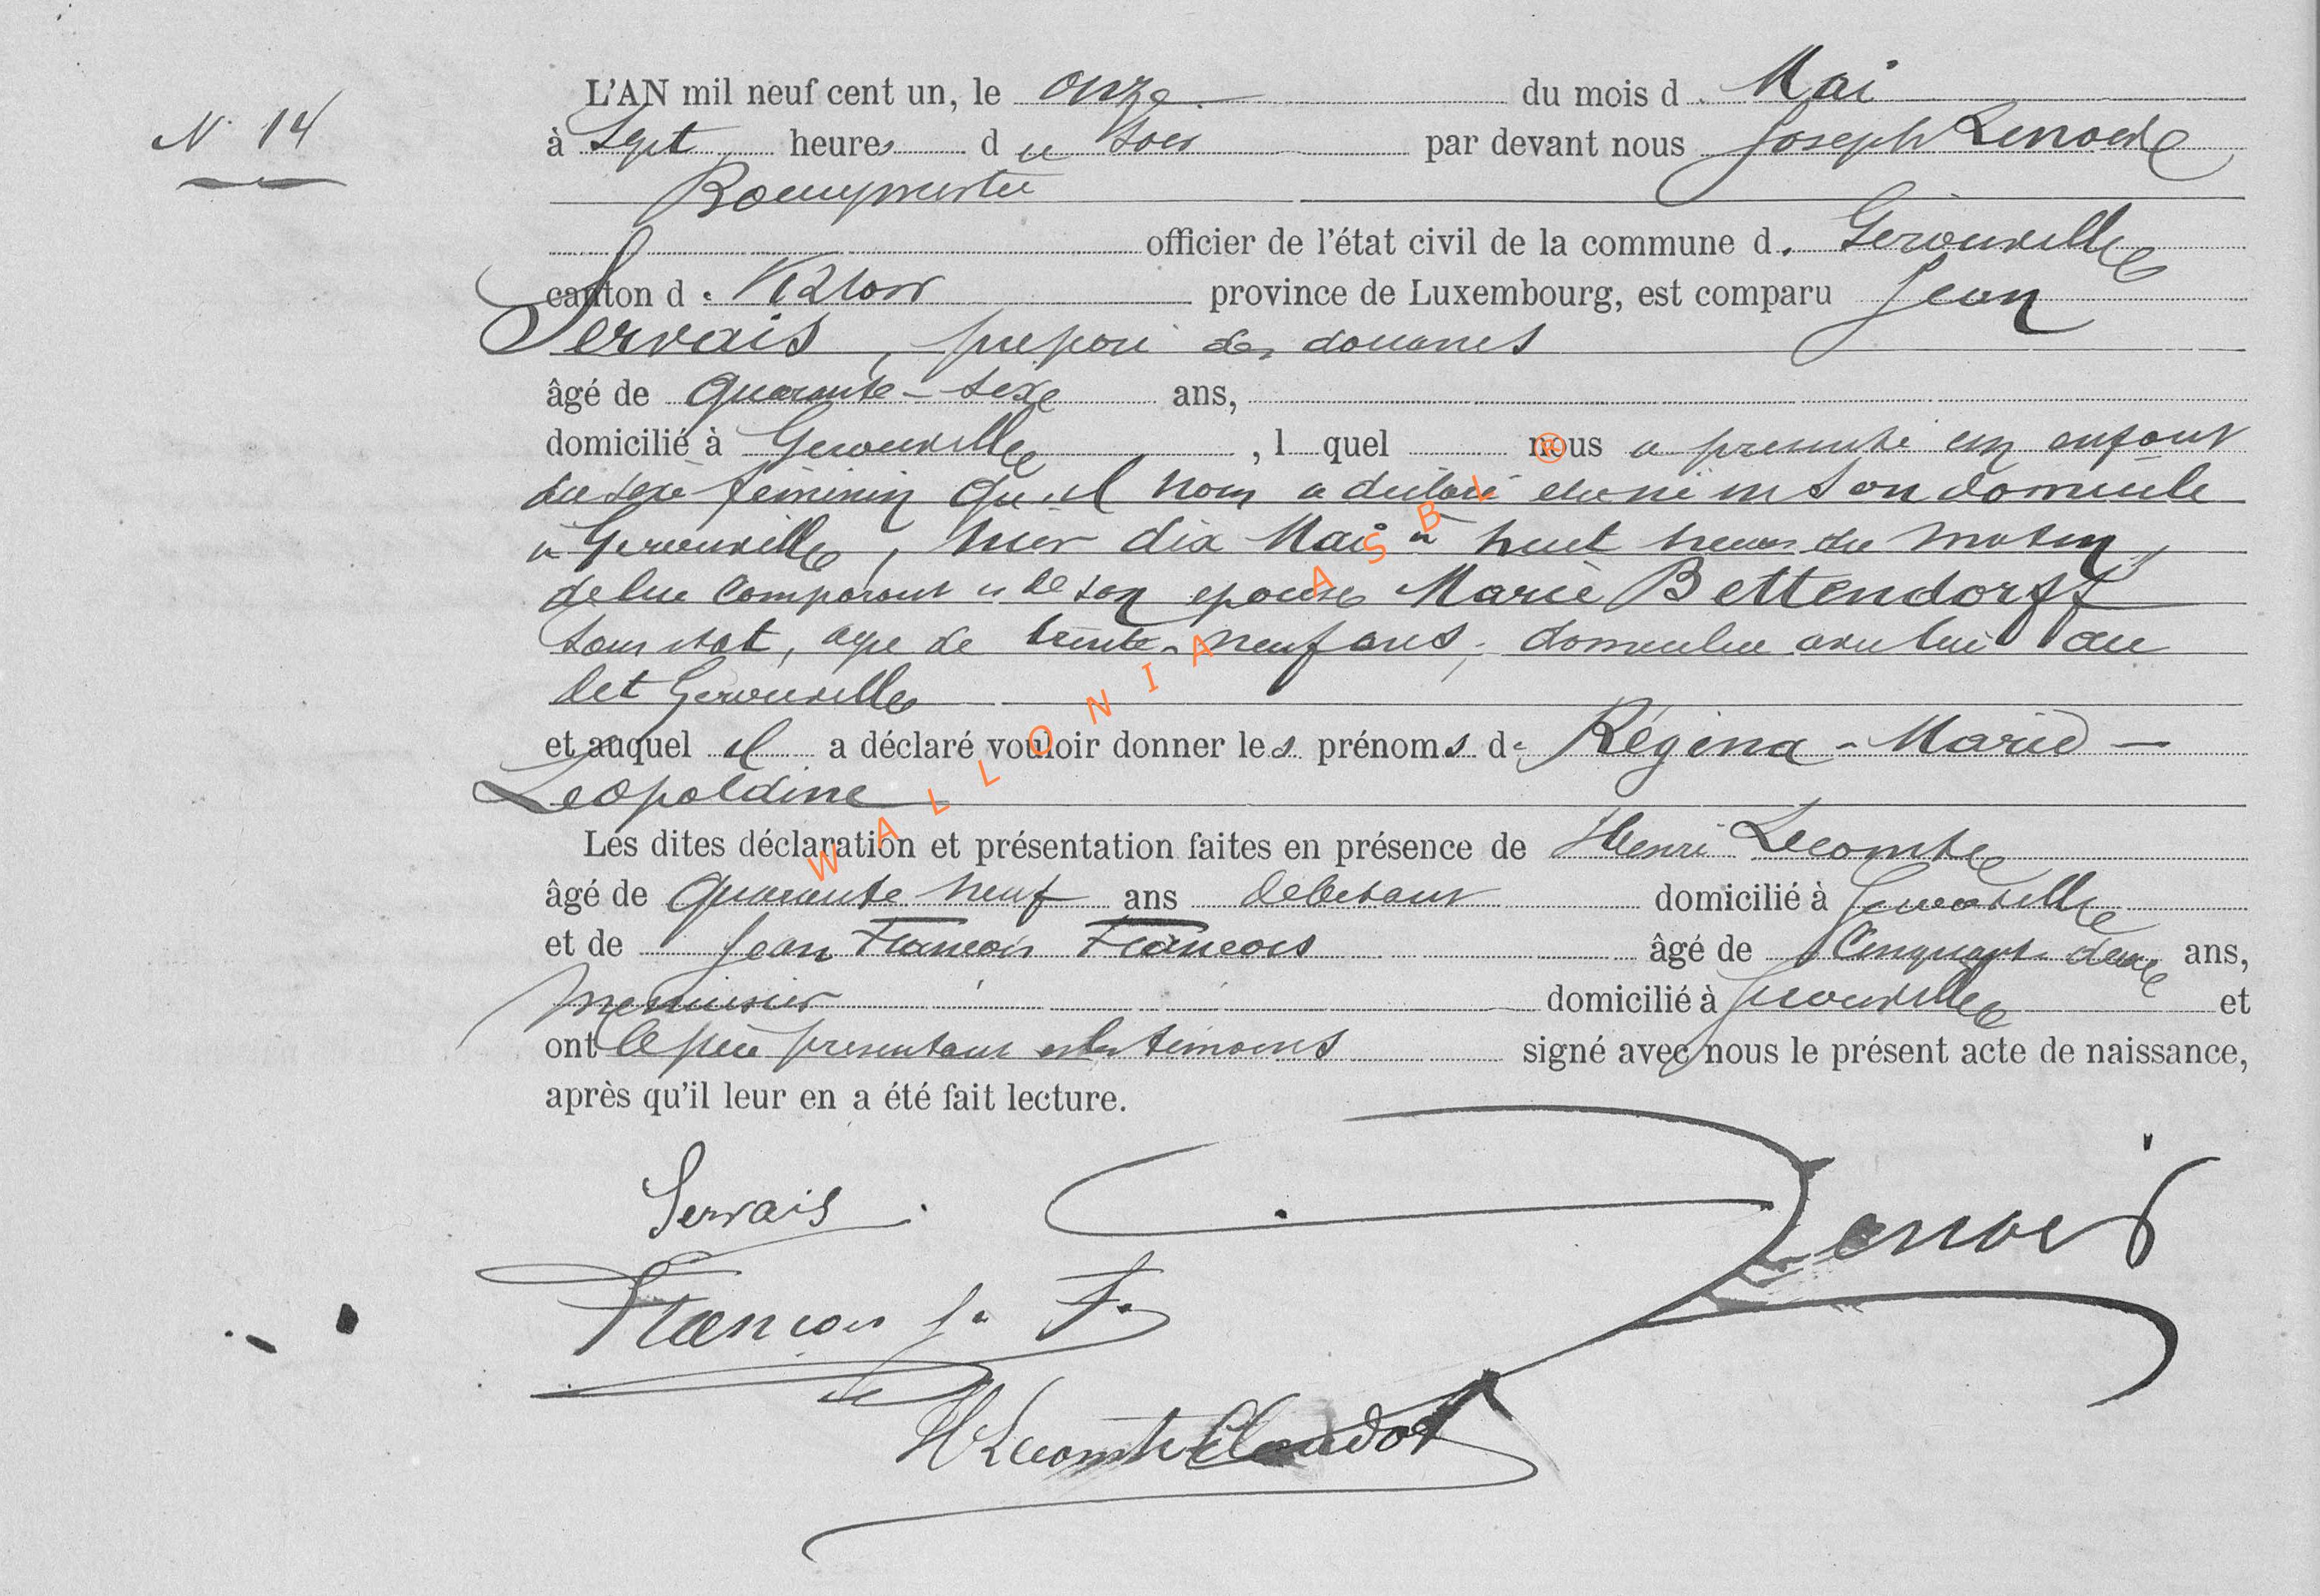 N. 14
L'AN mil neuf cent un, le onze du mois d. Mai
à Sept heures du soir par devant nous Joseph
Bourgmestre
officier de l'état civil de la commune d. Gérouville
canton d. Virton province de Luxembourg, est comparu Jean
Servais, préposé des douanes
âgé de quarante-six ans,
domicilié à Gérouville, l quel nous a présenté un enfant
du sexe féminin qu'il nous a déclaré etre né en son domicile
à Gérouville, hier dix Mai à huit heures du matin,
de lui comparant et de son epouse Marie Bettendorff
sans état, agée de trente-neuf ans, domiciliée avec lui au
dit Gérouville
et auquel il a déclaré vouloir donner les prénoms de Régina-Marie-
Léopoldine
Les dites déclaration et présentation faites en présence de Henri Lecomte
âgé de quarante neuf ans débitant domicilié à Gérouville
et de Jean François François âgé de Cinquante deux ans,
menuisier domicilié à Gérouville et
ont le père présentant et les témoins signé avec nous le présent acte de naissance,
après qu'il leur en a été fait lecture.
Servais
François J. F.
H Lecomte Claudot
WALLONIA ASBL ®